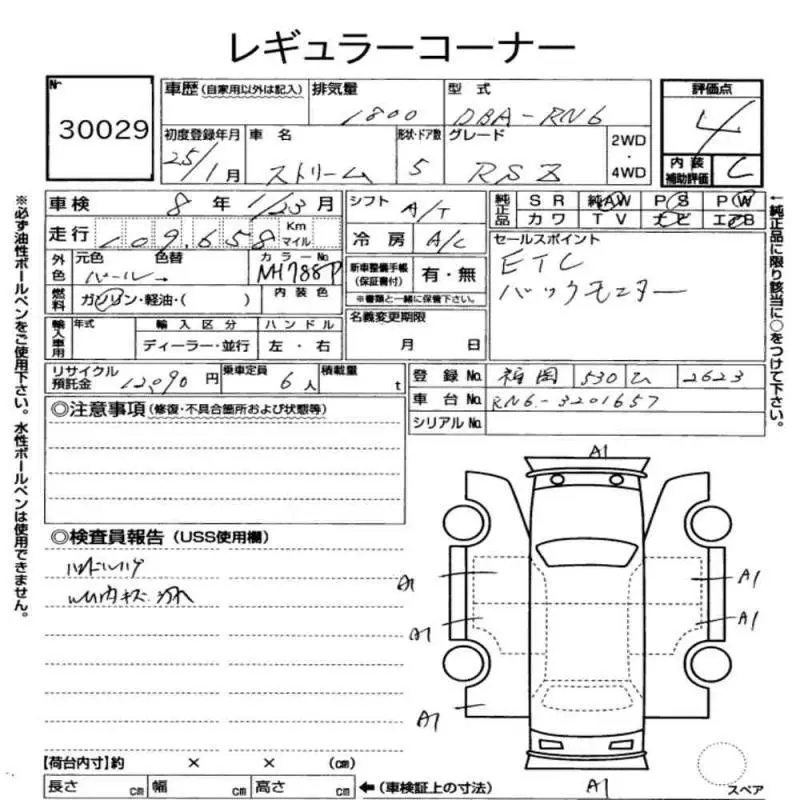 レギュラーコーナー
Nr
30029
車歴 (自家用以外は記入)
排気量
1800
型式
DBA-RN6
評価点
4
初度登録年月
25/1月
車名
ストリーム
形状・ドア数
5
グレード
RSZ
2WD
・
4WD
内装
補助評価
C
車検 8年 1/23月
シフト
A/T
純正品
SR
純AW
PS
PW
カワ
TV
ナビ
エアB
走行 109,658
Km
マイル
冷房
A/C
セールスポイント
ETC
バックモニター
外色
元色
パール
色替
カラーNo
NH788P
新車整備手帳
(保証書付)
有・無
※書類と一緒に保管下さい。
燃料
ガソリン・軽油・( )
内装色
名義変更期限
月 日
輸入車用
年式
輸入区分
ディーラー・並行
ハンドル
左・右
リサイクル
預託金
12,090円
乗車定員
6人
積載量
t
登録No.
福岡
530
2623
車台No.
RN6-3201657
シリアルNo.
◎注意事項 (修復・不具合箇所および状態等)
◎検査員報告 (USS使用欄)
A1
A1
A1
A1
A1
A1
A1
スペア
【荷台内寸】約 × × (cm)
長さ cm
幅 cm
高さ cm
←(車検証上の寸法)
※必ず油性ボールペンをご使用下さい。水性ボールペンは使用できません。
←純正品に限り該当に○をつけて下さい。